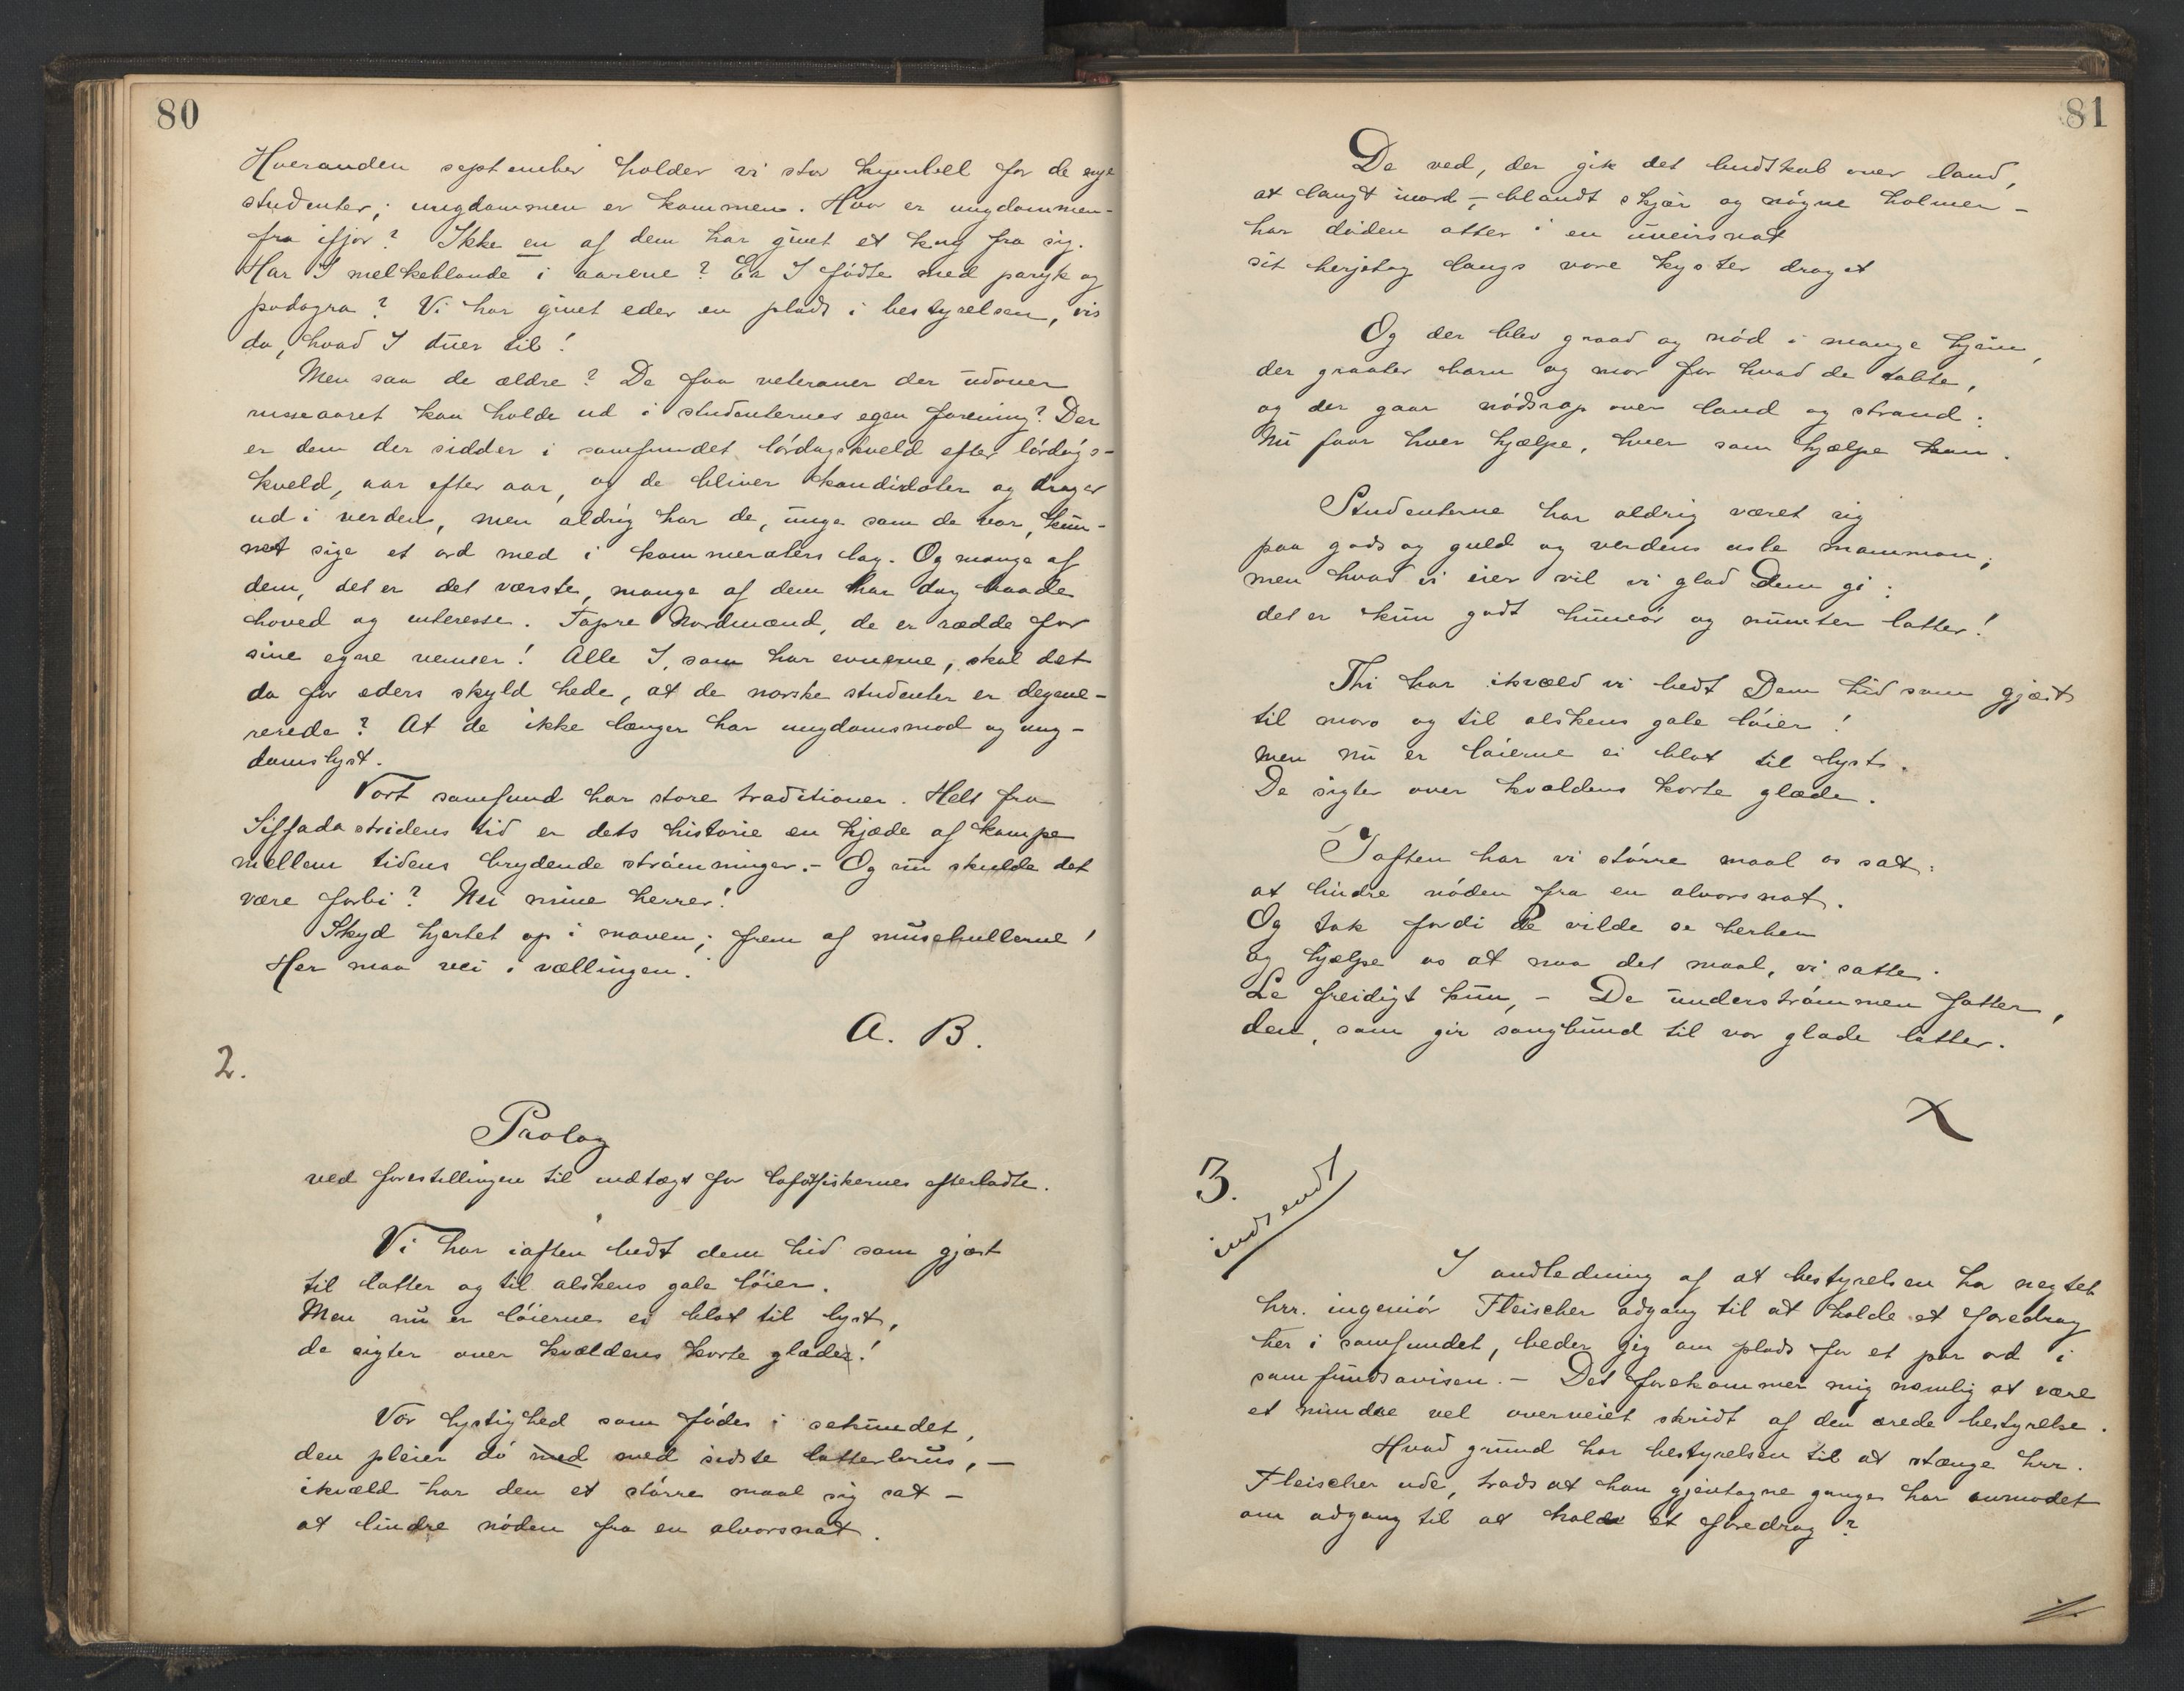 80
Hveranden september holder vi stor kyndell for de nye
studenter; ungdommen er kommen. Hvor er ungdommen
fra ifjor? Ikke en af dem har givet et kny fra sig.
Har I melkeblande i aarene? Er I födte med paryk og
podagra? Vi har givet eder en plads i bestyrelsen, vis
da, hvad I duer til!
Men saa de ældre? De faa veteraner der udover
russeaaret kan holde ud i studenternes egen forening? Der
er dem der sidder i samfundet lördagskveld efter lördags-
kveld, aar efter aar, og de bliver kandidater og drager
ud i verden, men aldrig har de, unge som de var, kun-
net sige et ord med i kammeraters lag. Og mange af
dem, det er det værste, mange af dem har dog baade
hoved og interesse. Tapre Nordmænd, de er rædde for
sine egne venner! Alle I, som har evnerne, skal det
da for eders skyld hede, at de norske studenter er degene-
rerede? At de ikke længer har ungdomsmod og ung-
domslyst.
Vort samfund har store traditioner. Helt fra
Siffadastridens tid er dets historie en kjæde af kampe
mellem tidens brydende strömninger. – Og nu skulde det
være forbi? Nei mine herrer!
Skyd hjertet op i maven; frem af musehullerne!
Her maa vei i vællingen.
A. B.
2.
Prolog
ved forestillingen til indtægt for lofotfiskernes efterladte.
Vi har iaften budt dem hid som gjæst
til latter og til alskens gale löier.
Men nu er löierne ei blot til lyst,
de sigter over kvældens korte glæder!
Vor lystighed som födes i sekundet,
den pleier dö med med sidste latterbrus, –
ikvæld har den et större maal sig sat –
at lindre nöden fra en alvorsnat.
81
De ved, der gik det budskab over land,
at langt imord, – blandt skjær og nögne holmer –
har döden atter i en uveirsnat
sit herjetog langs vore kyster draget
Og der blev graad og nöd i mange hjem,
der graater barn og mor for hvad de tabte,
og der gaar nödsrop over land og strand:
Nu faar hver hjælpe, hver som hjælpe kan.
Studenterne har aldrig været rig
paa gods og guld og verdens usle mammon;
men hvad vi eier vil vi glad Dem gi:
det er kun godt humör og munter latter!
Thi har ikvæld vi bedt Dem hid som gjæst
til moro og til alskens gale löier!
men nu er löierne ei blot til lyst.
De sigter over kvældens korte glæde.
Iaften har vi större maal os sat:
at lindre nöden fra en alvorsnat.
Og tak fordi De vilde se herhen
og hjælpe os at naa det maal, vi satte.
Le freidigt kun, – De underströmmen fatter,
den, som gir sangbund til vor glade latter.
X
3.
indsendt
I andledning af at bestyrelsen ha negtet
hrr. ingeniör Fleischer adgang til at holde et foredrag
her i samfundet, beder jeg om plads for et par ord i
samfundsavisen. – Det forekommer mig nemlig at være
et mindre vel overveiet skridt af den ærede bestyrelse.
Hvad grund har bestyrelsen til at stænge hrr.
Fleischer ude, trods at han gjentagne ganger har anmodet
om adgang til at holde et foredrag?